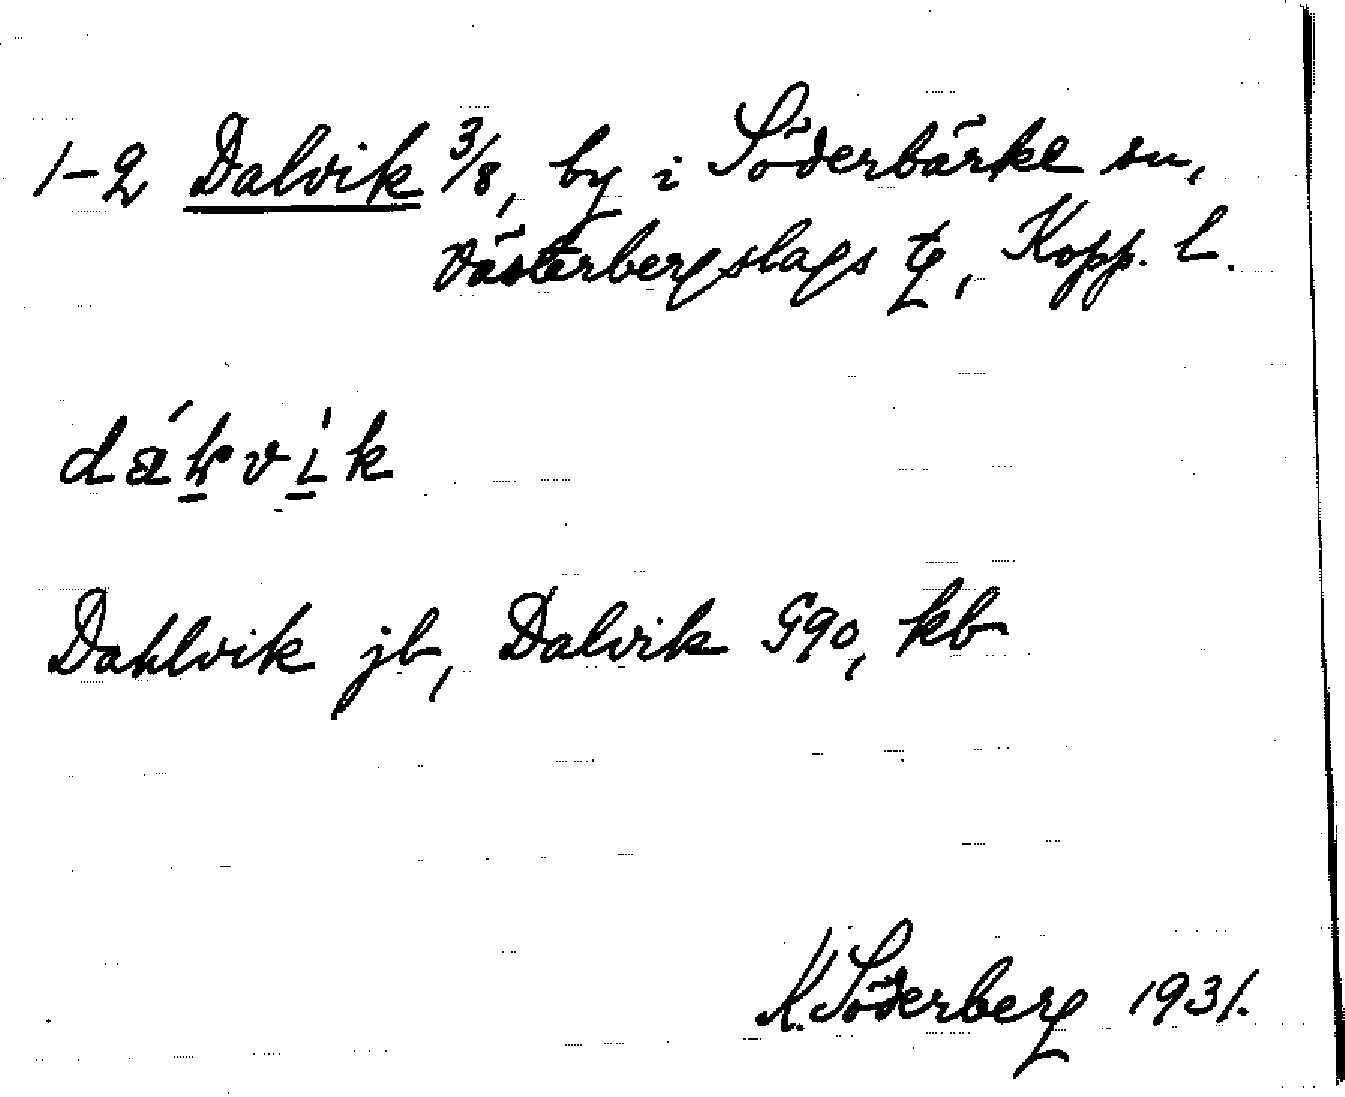 1-2 Dalvik 3/8, by i Söderbärke sn,
Västerbergslags tg, Kopp. l.
Dahlvik jb, Dalvik G90, kb
K. Söderberg 1931.